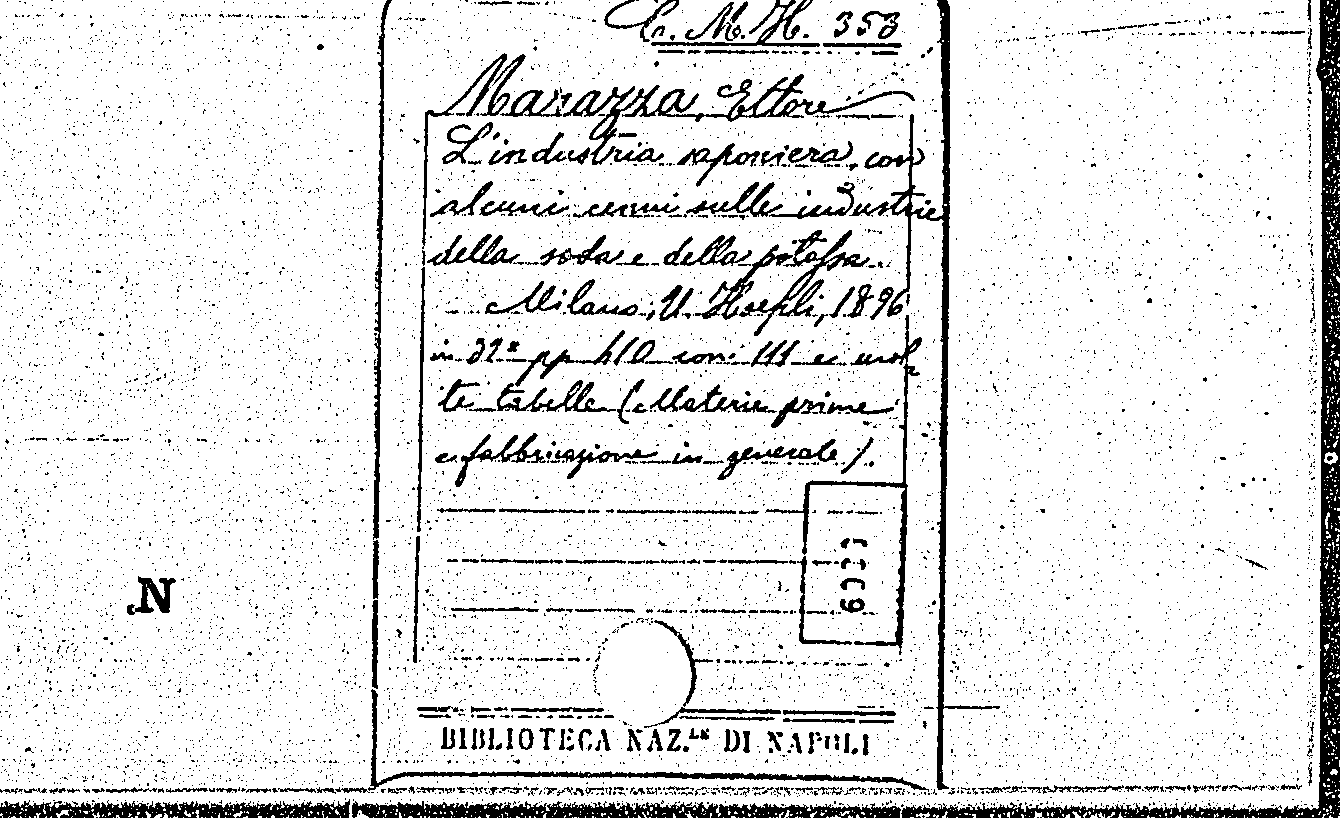 C. M. H. 353
Marazza, Ettore
L'industria saponiera, con
alcuni cenni sulle industrie
della soda e della potassa.
Milano, U. Hoepli, 1896
in 32° pp 410 con 111 e mol
te tabelle (Materie prime
e fabbricazione in generale).
N
BIBLIOTECA NAZ.LE DI NAPOLI